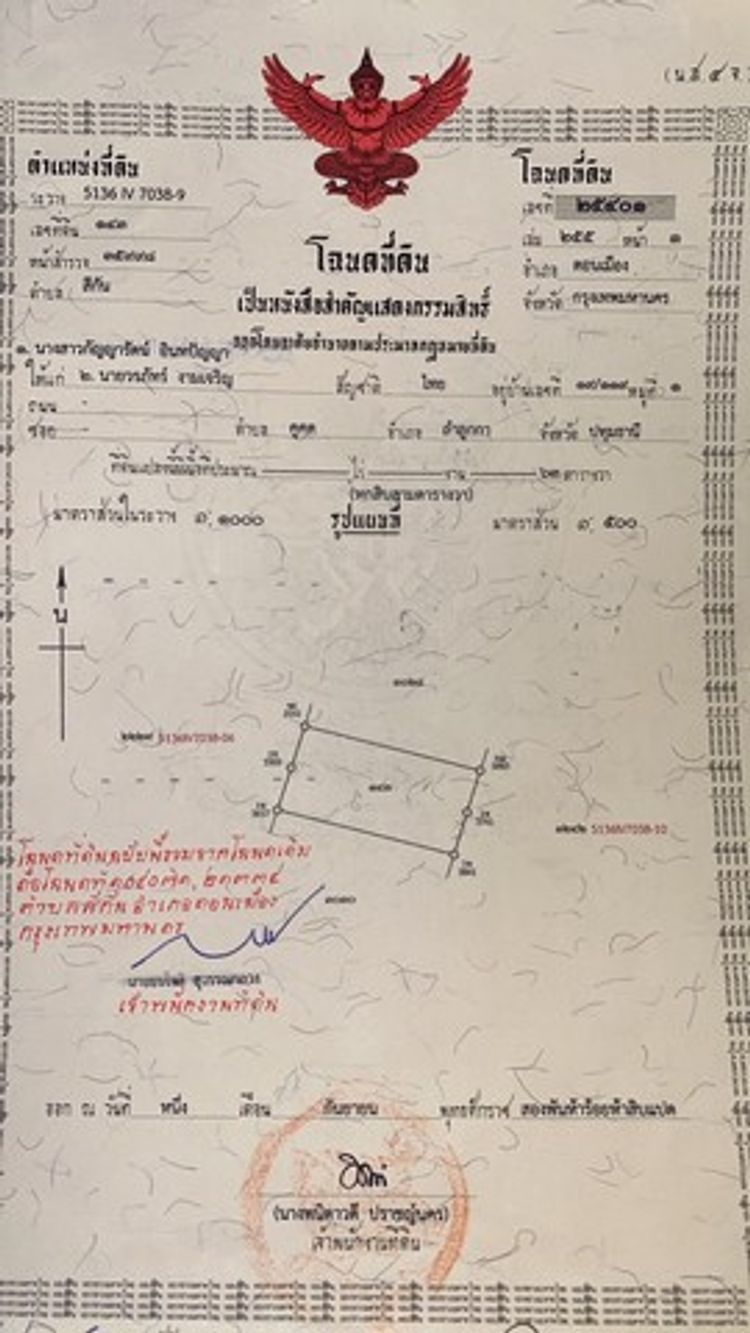 (น.ส.๔ จ.)
ตำแหน่งที่ดิน
ระวาง 5136 IV 7038-9
เลขที่ดิน
หน้าสำรวจ
ตำบล สีกัน
โฉนดที่ดิน
เลขที่ ๒๕๔๐๑
เล่ม ๒๕๕ หน้า ๑
อำเภอ ดอนเมือง
จังหวัด กรุงเทพมหานคร
โฉนดที่ดิน
เป็นหนังสือสำคัญแสดงกรรมสิทธิ์
ออกโดยอาศัยอำนาจตามประมวลกฎหมายที่ดิน
๑. นางสาวกัญญารัตน์ อินทปัญญา
ให้แก่ ๒. นายวนภัทร์ งามเจริญ สัญชาติ ไทย อยู่บ้านเลขที่ หมู่ที่ ๑
ถนน -
ซอย - ตำบล คูคต อำเภอ ลำลูกกา จังหวัด ปทุมธานี
ที่ดินแปลงนี้มีเนื้อที่ประมาณ ไร่ งาน ๖๓ ตารางวา
(หกสิบสามตารางวา)
มาตราส่วนในระวาง ๑: ๑๐๐๐ รูปแผนที่ มาตราส่วน ๑: ๕๐๐
น
5136IV7038-06
5136IV7038-10
โฉนดที่ดินฉบับนี้รวมจากโฉนดเดิม
ตำบลสีกัน อำเภอดอนเมือง
กรุงเทพมหานคร
เจ้าพนักงานที่ดิน
ออก ณ วันที่ หนึ่ง เดือน กันยายน พุทธศักราช สองพันห้าร้อยห้าสิบแปด
(นางพนิตาวดี ปราชญ์นคร)
เจ้าพนักงานที่ดิน